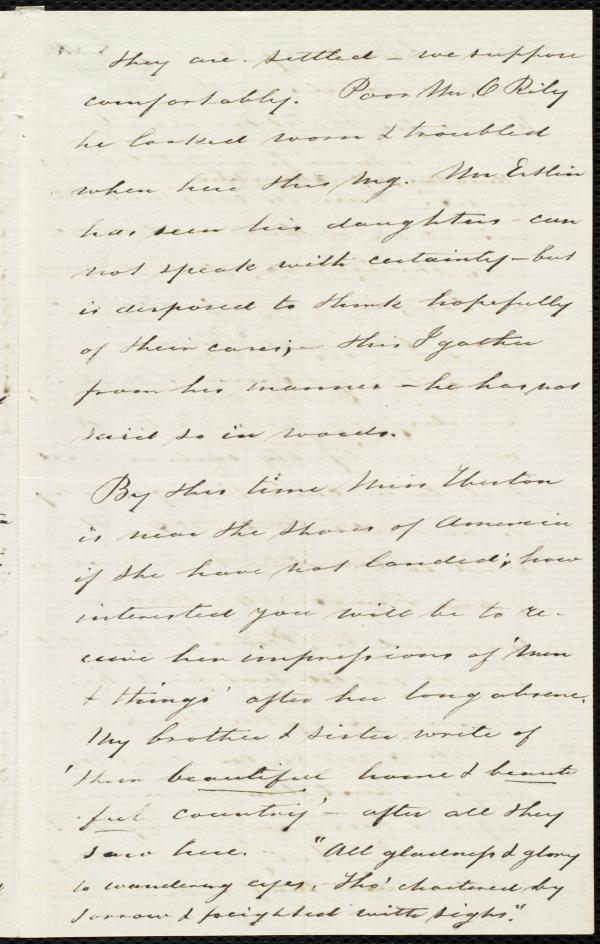 they are settled – we suppose
comfortably. Poor Mr. O Rily
he looked worn & troubled
when here this Mg. Mr Estlin
has seen his daughters – can
not speak with certainty – but
is disposed to think hopefully
of their cases; – this I gather
from his manner – he has not
said so in words.
By this time Miss Weston
is near the shores of America
if she have not landed; how
interested you will be to re-
ceive her impressions of 'men
& things' after her long absence.
My brother & sister write of
'their beautiful home & beauti
ful country' – after all they
saw here. – "All gladness & glory
to wandering eyes, Tho' chartered by
sorrow & freighted with sighs".